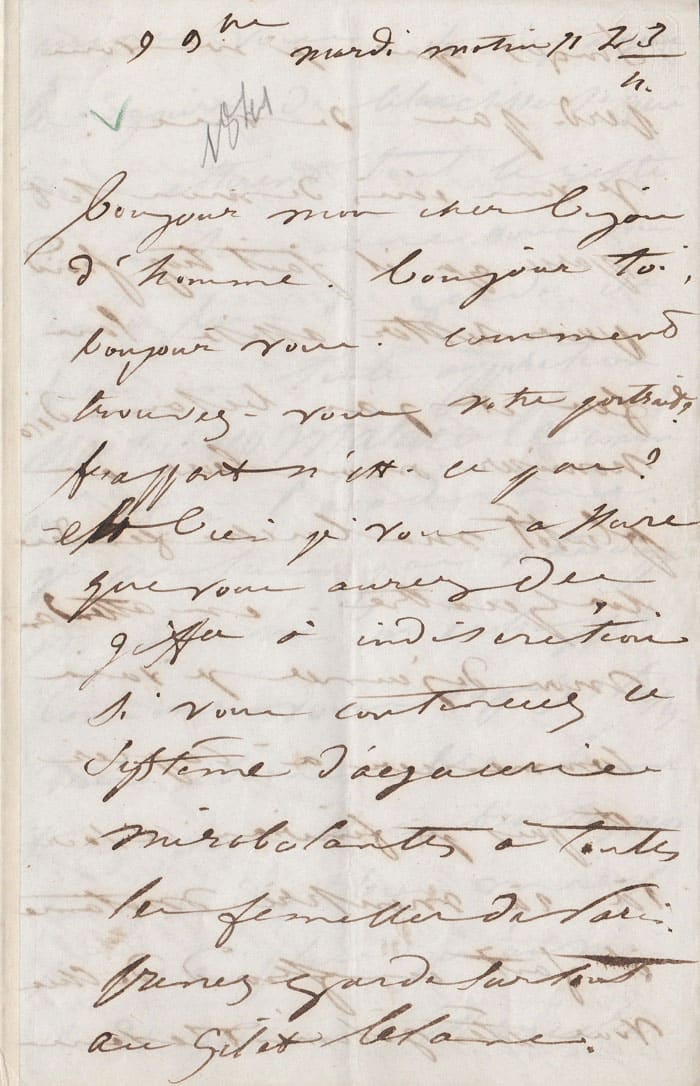 9 9bre mardi matin 11 h. 3/4
1841
bonjour mon cher bijou
d'homme. bonjour toi,
bonjour vous. comment
trouvez-vous votre portrait?
frappant n'est-ce pas?
eh bien je vous assure
que vous aurez des
giffles à indiscrétion
si vous continuez ce
système d'agaceries
mirobolantes à toutes
les femelles de Paris.
prenez garde surtout
au gilet blanc.